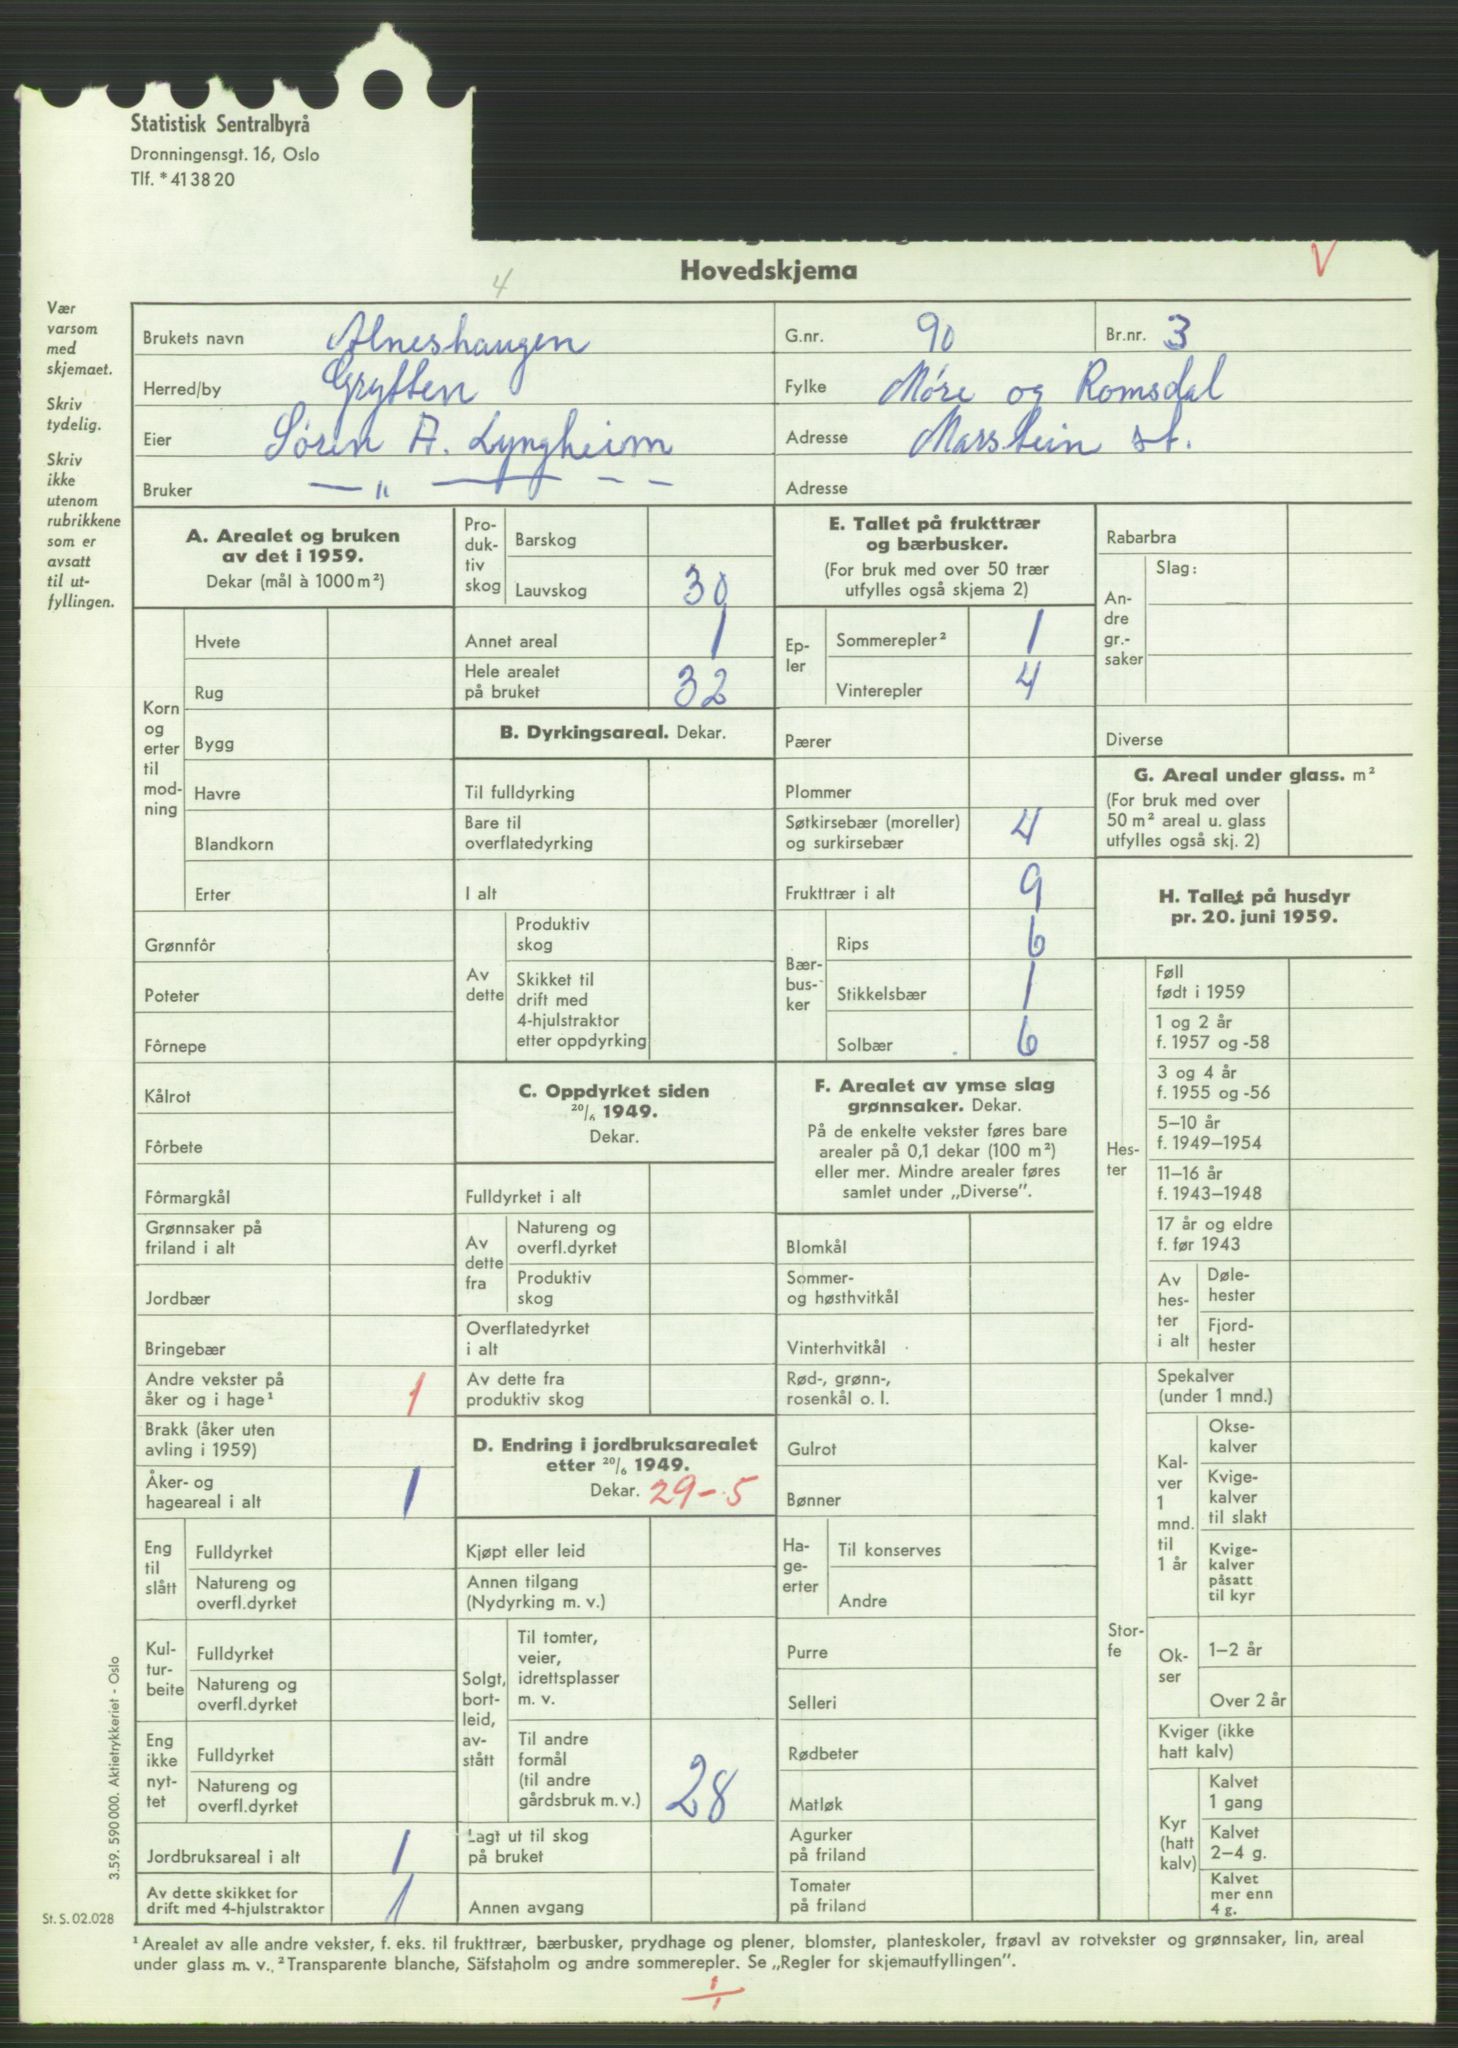 Statistisk Sentralbyrå
Dronningensgt. 16, Oslo
Tlf. * 41 38 20
Hovedskjema
V
4
Vær
varsom
med
skjemaet.
Skriv
tydelig.
Skriv
ikke
utenom
rubrikkene
som er
avsatt
til ut-
fyllingen.
Brukets navn Alneshaugen G.nr. 90 Br.nr. 3
Herred/by Grytten Fylke Møre og Romsdal
Eier Søren A. Lyngheim Adresse Marstein st.
Bruker — " — — — Adresse
A. Arealet og bruken
av det i 1959.
Dekar (mål à 1000 m²)
Korn
og
erter
til
mod-
ning
Hvete
Rug
Bygg
Havre
Blandkorn
Erter
Grønnfôr
Poteter
Fôrnepe
Kålrot
Fôrbete
Fôrmargkål
Grønnsaker på
friland i alt
Jordbær
Bringebær
Andre vekster på
åker og i hage¹ 1
Brakk (åker uten
avling i 1959)
Åker- og
hageareal i alt 1
Eng
til
slått
Fulldyrket
Natureng og
overfl.dyrket
Kul-
tur-
beite
Fulldyrket
Natureng og
overfl.dyrket
Eng
ikke
nyt-
tet
Fulldyrket
Natureng og
overfl.dyrket
Jordbruksareal i alt 1
Av dette skikket for
drift med 4-hjulstraktor 1
Pro-
duk-
tiv
skog
Barskog
Lauvskog 30
Annet areal 1
Hele arealet
på bruket 32
B. Dyrkingsareal. Dekar.
Til fulldyrking
Bare til
overflatedyrking
I alt
Av
dette
Produktiv
skog
Skikket til
drift med
4-hjulstraktor
etter oppdyrking
C. Oppdyrket siden
20/6 1949.
Dekar.
Fulldyrket i alt
Av
dette
fra
Natureng og
overfl.dyrket
Produktiv
skog
Overflatedyrket
i alt
Av dette fra
produktiv skog
D. Endring i jordbruksarealet
etter 20/6 1949.
Dekar. 29-5
Kjøpt eller leid
Annen tilgang
(Nydyrking m. v.)
Solgt,
bort-
leid,
av-
stått
Til tomter,
veier,
idrettsplasser
m. v.
Til andre
formål
(til andre
gårdsbruk m. v.) 28
Lagt ut til skog
på bruket
Annen avgang
E. Tallet på frukttrær
og bærbusker.
(For bruk med over 50 trær
utfylles også skjema 2)
Ep-
ler
Sommerepler² 1
Vinterepler 4
Pærer
Plommer
Søtkirsebær (moreller)
og surkirsebær 4
Frukttrær i alt 9
Bær-
bus-
ker
Rips 6
Stikkelsbær 1
Solbær 6
F. Arealet av ymse slag
grønnsaker. Dekar.
På de enkelte vekster føres bare
arealer på 0,1 dekar (100 m²)
eller mer. Mindre arealer føres
samlet under „Diverse”.
Blomkål
Sommer-
og høsthvitkål
Vinterhvitkål
Rød-, grønn-,
rosenkål o. l.
Gulrot
Bønner
Ha-
ge-
erter
Til konserves
Andre
Purre
Selleri
Rødbeter
Matløk
Agurker
på friland
Tomater
på friland
Rabarbra
An-
dre
gr.-
saker
Slag:
Diverse
G. Areal under glass. m²
(For bruk med over
50 m² areal u. glass
utfylles også skj. 2)
H. Tallet på husdyr
pr. 20. juni 1959.
Hes-
ter
Føll
født i 1959
1 og 2 år
f. 1957 og -58
3 og 4 år
f. 1955 og -56
5–10 år
f. 1949–1954
11–16 år
f. 1943–1948
17 år og eldre
f. før 1943
Av
hes-
ter
i alt
Døle-
hester
Fjord-
hester
Stor-
fe
Spekalver
(under 1 mnd.)
Kal-
ver
1
mnd.
til
1 år
Okse-
kalver
Kvige-
kalver
til slakt
Kvige-
kalver
påsatt
til kyr
Ok-
ser
1–2 år
Over 2 år
Kviger (ikke
hatt kalv)
Kyr
(hatt
kalv)
Kalvet
1 gang
Kalvet
2–4 g.
Kalvet
mer enn
4 g.
3.59. 590 000. Aktietrykkeriet - Oslo
St. S. 02.028
¹ Arealet av alle andre vekster, f. eks. til frukttrær, bærbusker, prydhage og plener, blomster, planteskoler, frøavl av rotvekster og grønnsaker, lin, areal
under glass m. v. ² Transparente blanche, Säfstaholm og andre sommerepler. Se „Regler for skjemautfyllingen”.
1/1